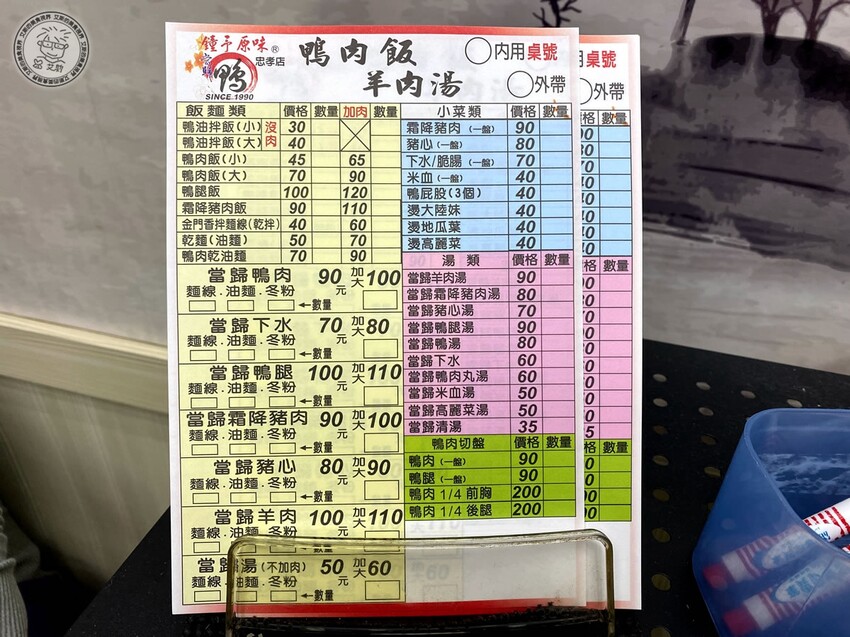 鍾予原味®
忠孝店
鴨
SINCE 1990
鴨肉飯
羊肉湯
內用桌號
外帶
飯麵類 價格 數量 加肉 數量
鴨油拌飯(小) 沒肉 30
鴨油拌飯(大) 40
鴨肉飯(小) 45 65
鴨肉飯(大) 70 90
鴨腿飯 100 120
霜降豬肉飯 90 110
金門香拌麵線(乾拌) 40 60
乾麵(油麵) 50 70
鴨肉乾油麵 70 90
當歸鴨肉 90元 加大100
麵線.油麵.冬粉
←數量
當歸下水 70元 加大80
麵線.油麵.冬粉
←數量
當歸鴨腿 100元 加大110
麵線.油麵.冬粉
←數量
當歸霜降豬肉 90元 加大100
麵線.油麵.冬粉
←數量
當歸豬心 80元 加大90
麵線.油麵.冬粉
←數量
當歸羊肉 100元 加大110
麵線.油麵.冬粉
←數量
當歸湯(不加肉) 50元 加大60
麵線.油麵.冬粉
←數量
小菜類 價格 數量
霜降豬肉(一盤) 90
豬心(一盤) 80
下水/脆腸(一盤) 70
米血(一盤) 40
鴨屁股(3個) 40
燙大陸妹 40
燙地瓜葉 40
燙高麗菜 40
湯類 價格 數量
當歸羊肉湯 90
當歸霜降豬肉湯 80
當歸豬心湯 70
當歸鴨腿湯 90
當歸鴨湯 80
當歸下水 60
當歸鴨肉丸湯 60
當歸米血湯 50
當歸高麗菜湯 50
當歸清湯 35
鴨肉切盤 價格 數量
鴨肉(一盤) 90
鴨腿(一盤) 90
鴨肉1/4前胸 200
鴨肉1/4後腿 200
用桌號
外帶
格 數量
格 數量
格 數量